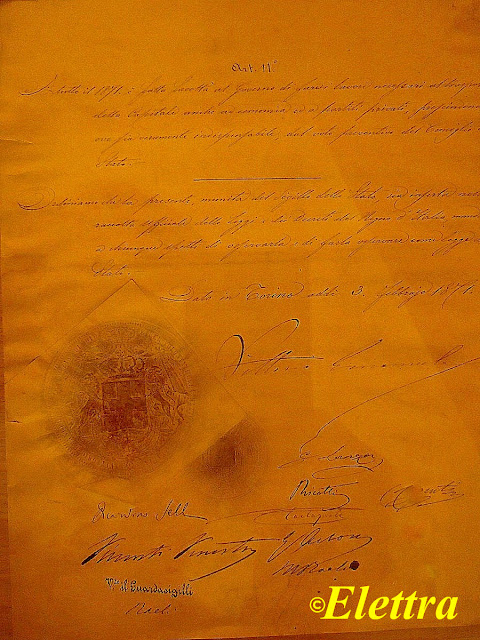 Art. 11°
A tutto il 1871 è fatta facoltà al Governo di fare lavori
della Capitale anche ad economia ed a partiti privati,
del voto preventivo del Consiglio di
Stato.
Ordiniamo che la presente, munita del Sigillo dello Stato, sia inserta nella
raccolta ufficiale delle leggi e dei Decreti del Regno d'Italia,
a chiunque spetti di osservarla e di farla osservare come legge dello
Stato.
Dato in Torino addì 3. febbrajo 1871.
Vittorio Emanuele
G. Lanza
Ricotti
Castagnola
Quintino Sella
Visconti Venosta
Vo. il Guardasigilli
Raeli
©Elettra